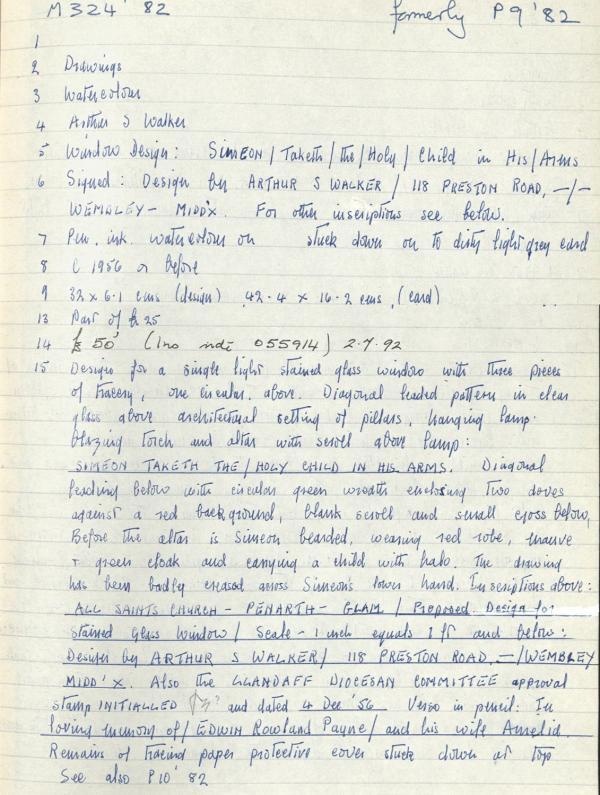 M324 '82 formerly P9 '82
1
2 Drawings
3 Watercolour
4 Arthur S Walker
5 Window Design: SIMEON / Taketh / the / Holy / Child in His / Arms
6 Signed: Design by ARTHUR S WALKER / 118 PRESTON ROAD, —/—
WEMBLEY - MIDD'X. For other inscriptions see below.
7 Pen, ink, watercolour on stuck down on to dirty light grey card
8 C 1956 or before
9 32 x 6.1 cms (design) 42.4 x 16.2 cms, (card)
13 Part of £25
14 £50 (Ino ndi 055914) 2.7.92
15 Design for a single light stained glass window with three pieces
of tracery, one circular, above. Diagonal leaded pattern in clear
glass above architectural setting of pillars, hanging lamp.
blazing torch and altar with scroll above lamp:
SIMEON TAKETH THE/HOLY CHILD IN HIS ARMS. Diagonal
leading below with circular green wreath enclosing two doves
against a red background, blank scroll and small cross below,
Before the altar is Simeon bearded, wearing red robe, mauve
+ green cloak and carrying a child with halo. The drawing
has been badly creased across Simeon's lower hand. Inscriptions above:
ALL SAINTS CHURCH - PENARTH - GLAM / Proposed Design for
Stained Glass Window / Scale - 1 inch equals 1 ft and below:
Design by ARTHUR S WALKER / 118 PRESTON ROAD, —/WEMBLEY
MIDD'X. Also the LLANDAFF DIOCESAN COMMITTEE approval
stamp INITIALLED and dated 4 Dec '56 Verso in pencil: In
loving memory of / EDWIN Rowland Payne / and his wife Amelia.
Remains of tracing paper protective cover stuck down at top
See also P10 '82